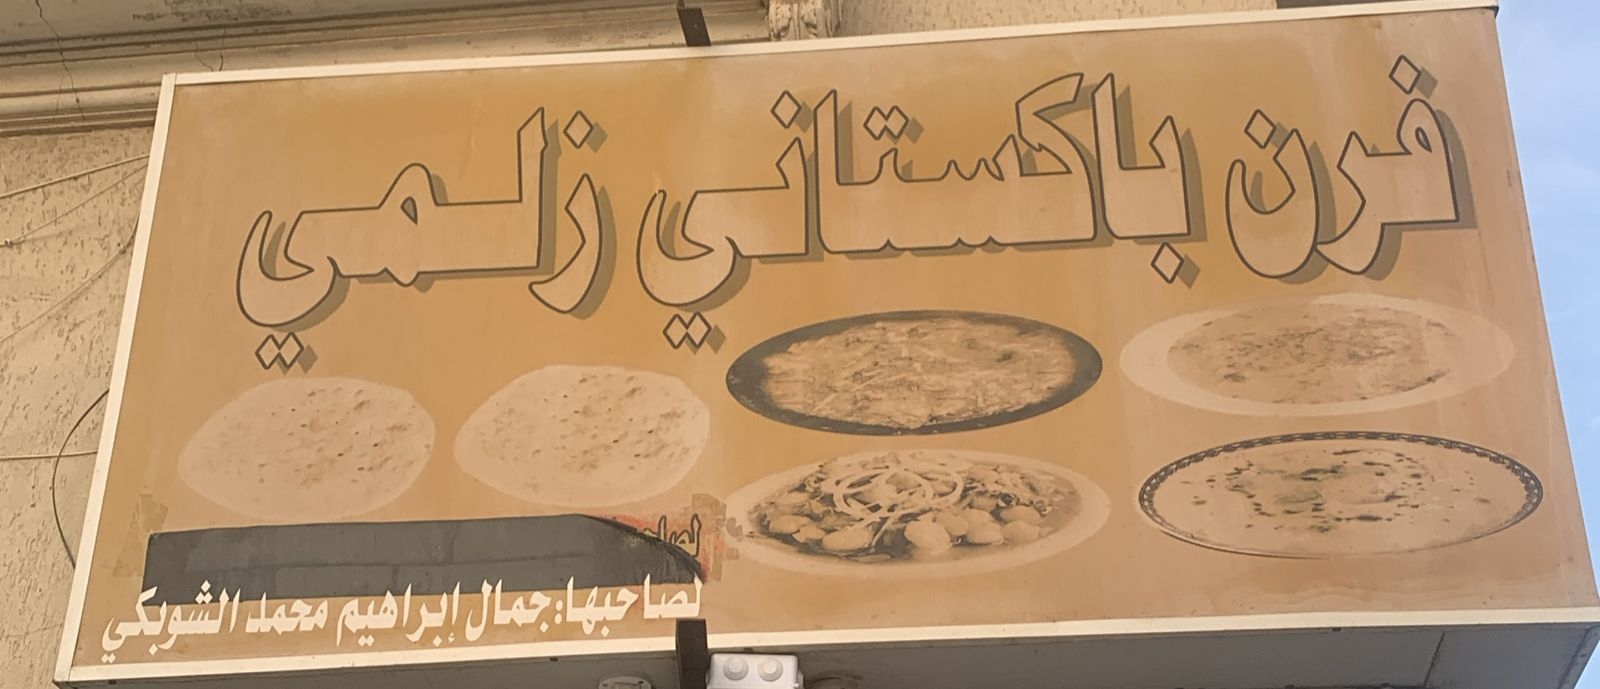 فرن باكستاني زلمي
لصاحبها:جمال إبراهيم محمد الشوبكي